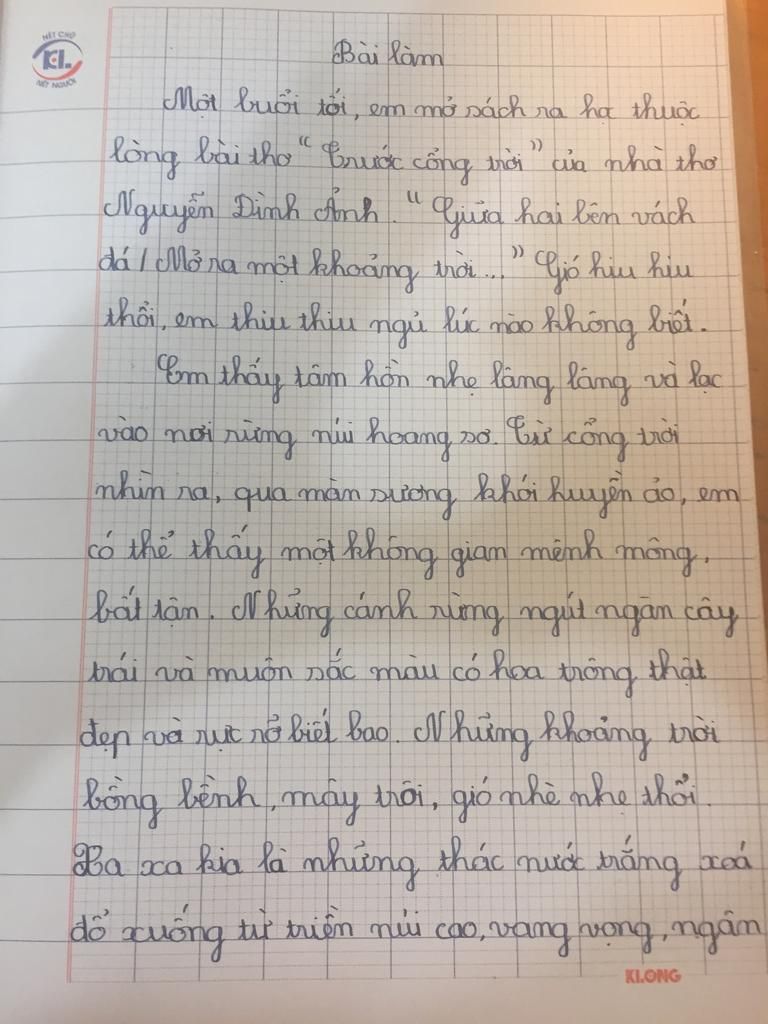 NÉT CHỮ
KL.
NẾT NGƯỜI
Bài làm
Một buổi tối, em mở sách ra học thuộc
lòng bài thơ "Trước cổng trời" của nhà thơ
Nguyễn Đình Ảnh. "Giữa hai bên vách
đá / Mở ra một khoảng trời..." Gió hiu hiu
thổi, em thiu thiu ngủ lúc nào không biết.
Em thấy tâm hồn nhẹ lâng lâng và lạc
vào nơi rừng núi hoang sơ. Từ cổng trời
nhìn ra, qua màn sương khói huyền ảo, em
có thể thấy một không gian mênh mông,
bất tận. Những cánh rừng ngút ngàn cây
trái và muôn sắc màu cỏ hoa trông thật
đẹp và rực rỡ biết bao. Những khoảng trời
bồng bềnh, mây trôi, gió nhè nhẹ thổi.
Xa xa kia là những thác nước trắng xoá
đổ xuống từ triền núi cao, vang vọng, ngân
KLONG